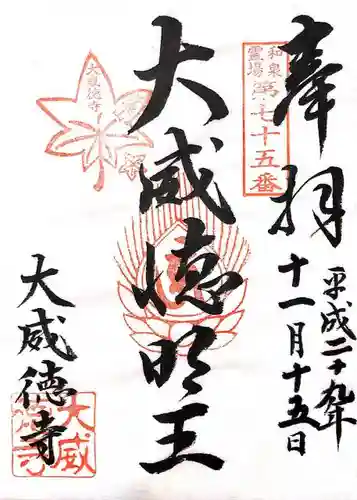 奉拝
平成二十九年
十一月十五日
和泉
霊場
第七十五番
大威徳明王
大威徳寺
大威徳寺
大威
徳寺